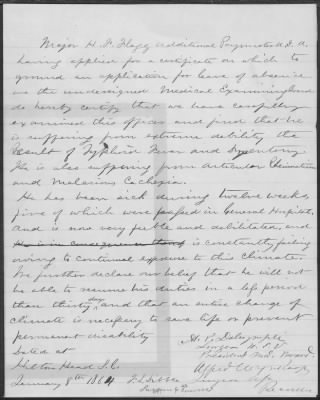 Major H. A. Flagg Additional Paymaster U.S.A.
having applied for a certificate on which to
ground an application for leave of absence
we the undersigned Medical Examining Board
do hereby certify that we have carefully
examined this officer and find that he
is suffering from extreme debility the
result of Typhoid Fever and Dysentery
He is also suffering from Articular Rheumatism
and Malarious Cachexia.
He has been sick during twelve weeks,
five of which were passed in General Hospital,
And is now very feeble and debilitated, and
is constantly failing
owing to continual exposure to this climate.
We further declare our belief that he will not
be able to resume his duties in a less period
than thirty days and that an entire change of
climate is necessary to save life or prevent
permanent disability
Dated at
Hilton Head S.C.
January 8th 1864
Surgeon
President Med. Board.
Alfred
Surgeon